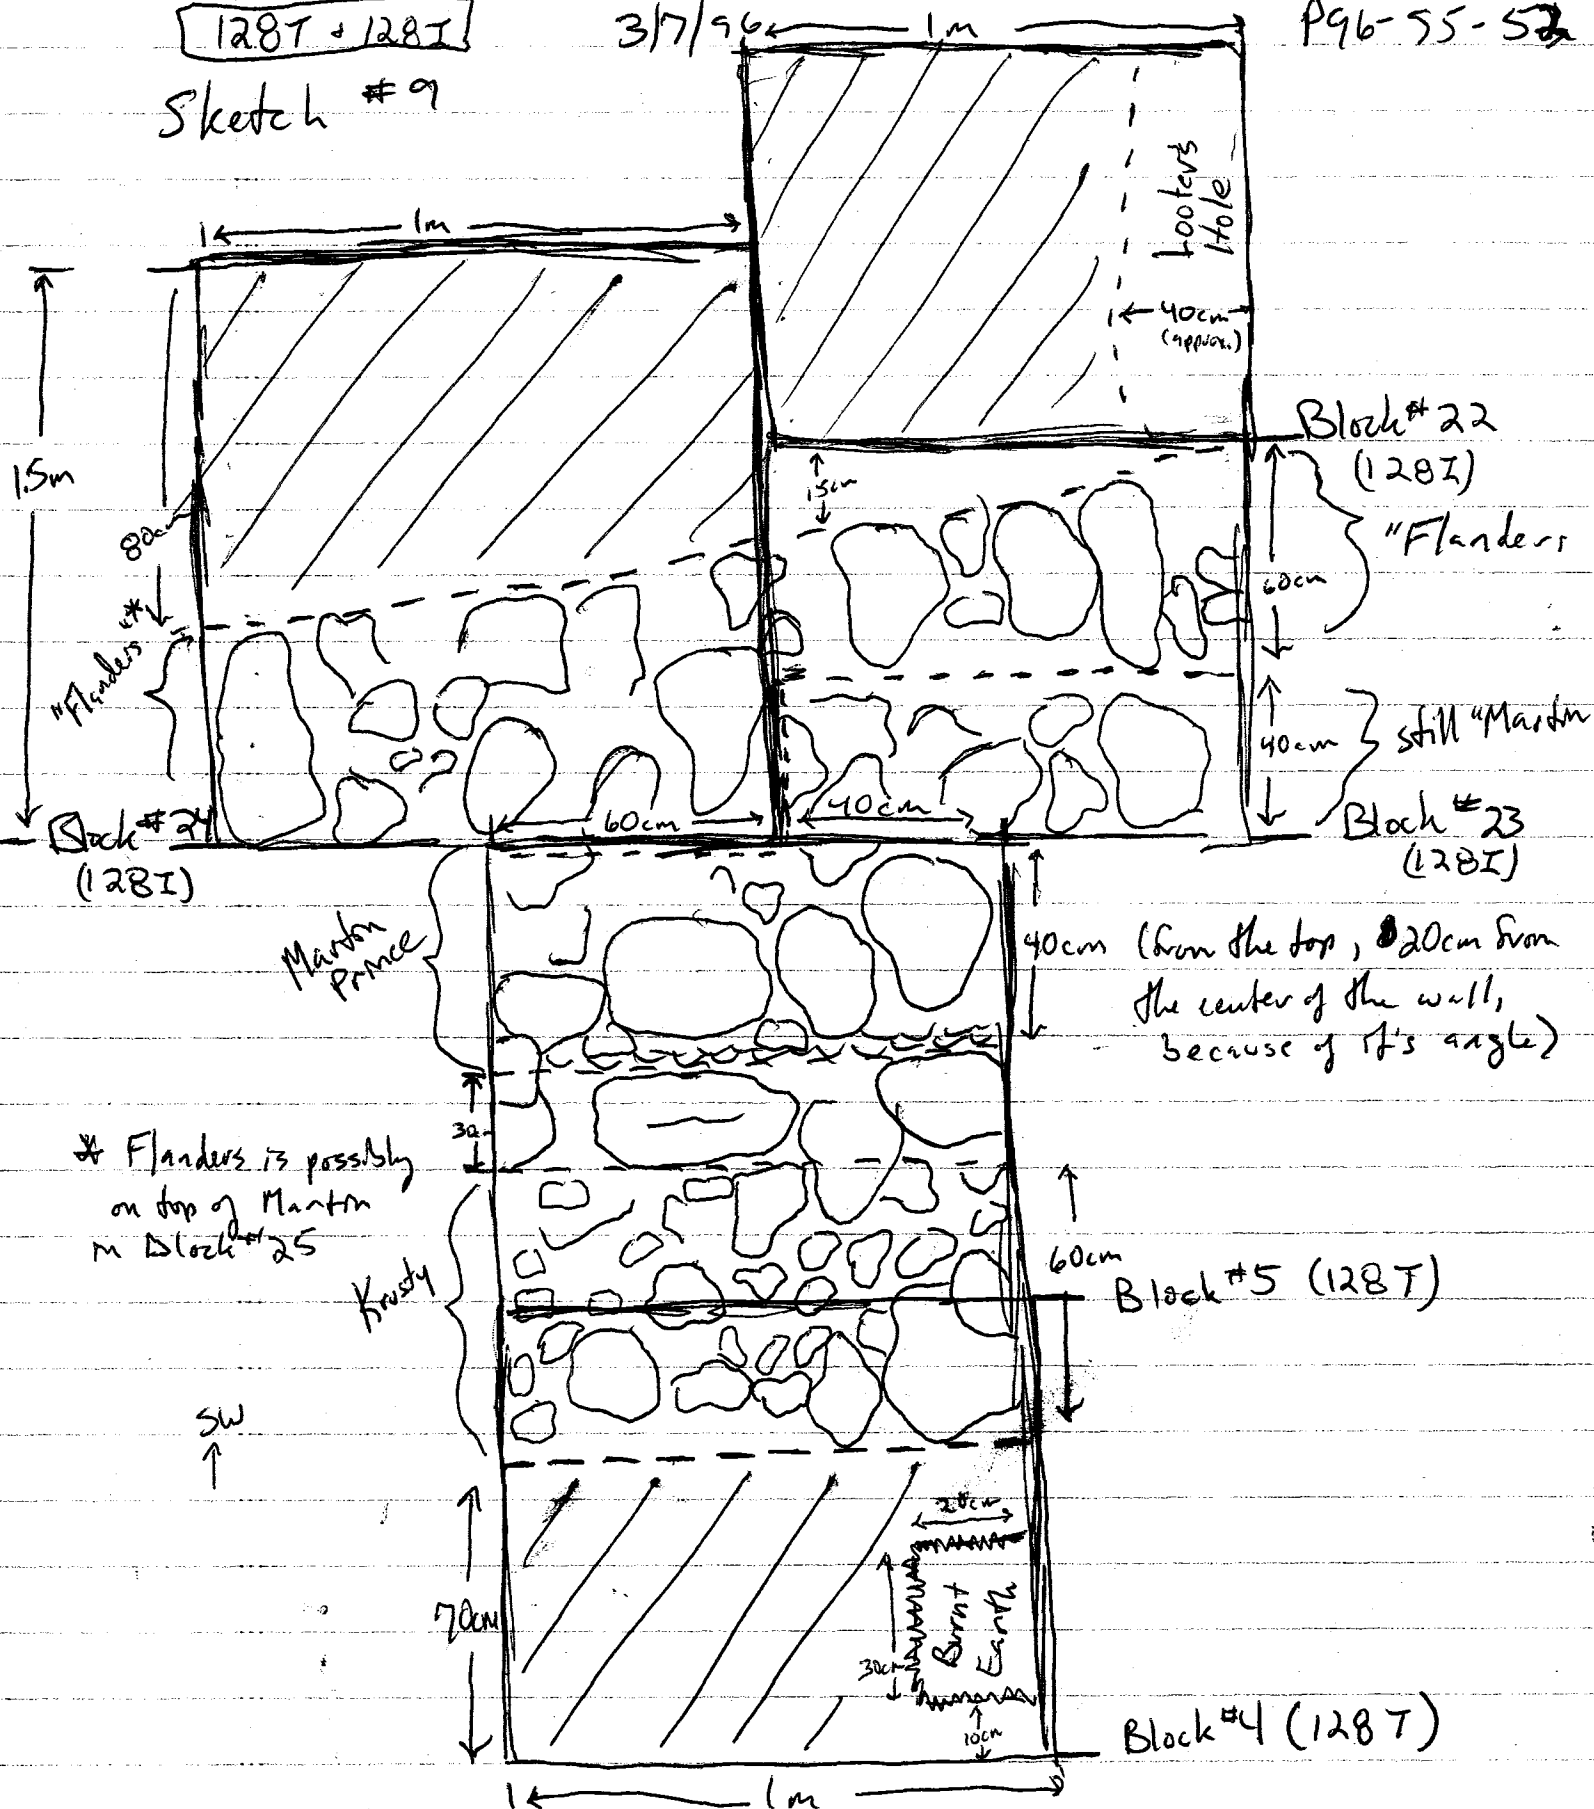 128T + 128I
3/7/96
1m
P96-55-52
Sketch #9
Looters
Hole
1m
40cm
(approx.)
Block #22
(128I)
1.5m
15cm
80cm
"Flanders
60cm
"Flanders"*
still "Martin
40cm
60cm
40cm
Block #24
(128I)
Block #23
(128I)
Martin
Prince
40cm (from the top, 20cm from
the center of the wall,
because of it's angle)
30
* Flanders is possibly
on top of Martin
in Block #25
Krusty
60cm
Block #5 (128T)
SW
20cm
70cm
Burnt
Earth
30cm
10cm
Block #4 (128T)
1m